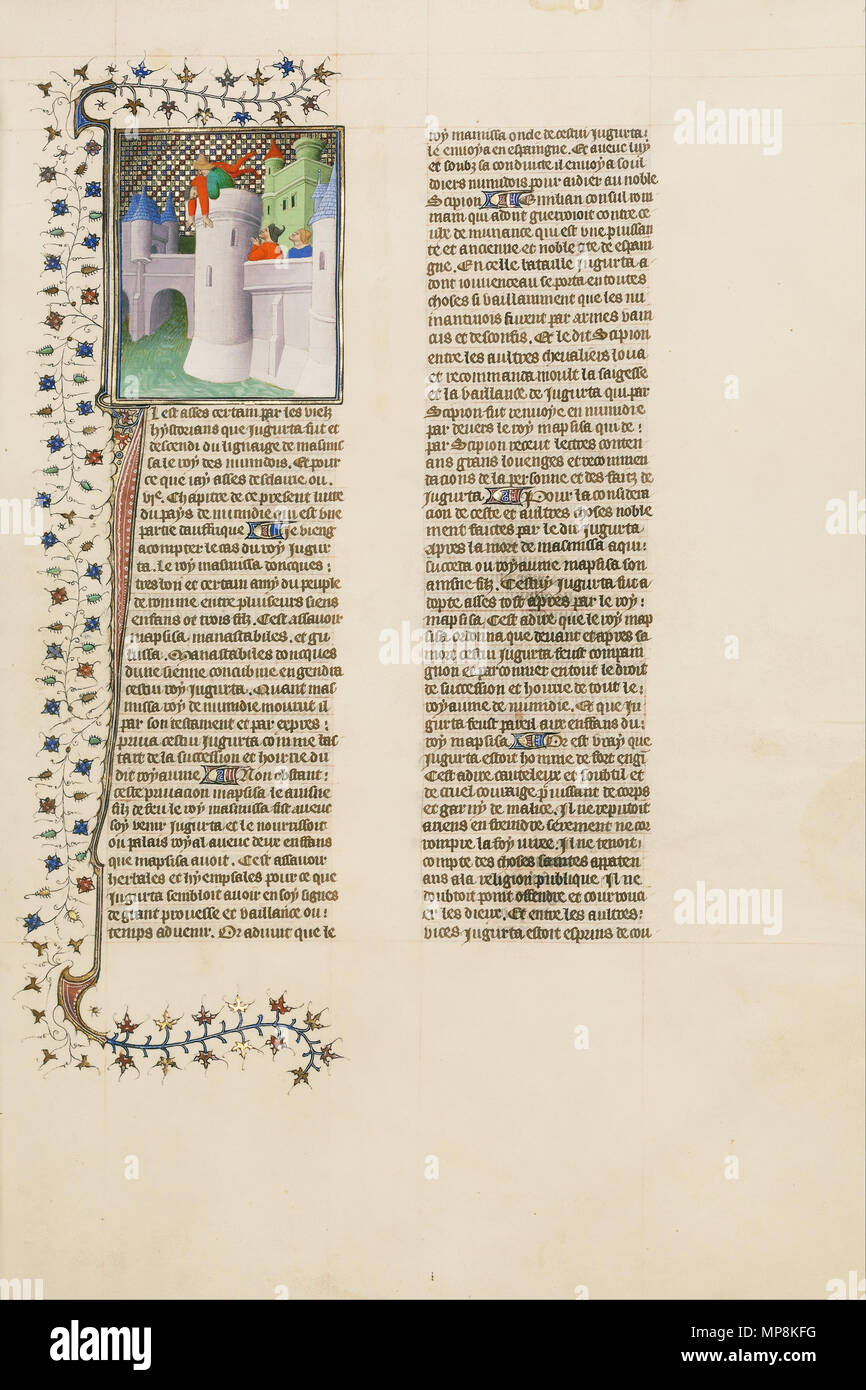 l est asses certain par les vielz
hystorians que Jugurta fut et
descendi du lignaige de masinis
sa le roy des numidois. Et pour
ce que iay asses desclaire ou.
vṫe. Chapitre de ce present livre
du pays de numidie qui est une
partie dauffrique Je vieng
a compter le cas du roy Jugur
ta. Le roy masinissa doncques:
tres bon et certain amy du peuple
de romme entre pluiseurs siens
enfans ot trois filz. Cest assavoir
mapsisa manastabiles. et gu
lussa. Manastabiles doncques
dune sienne concubine engendra
cestui roy Jugurta. Quant mas
nissa roy de numidie mourut il
par son testament et par expres:
priva cestui Jugurta comme bas
tart de la succession et hoirie du
dit royaume Non obstant:
ceste privacion mapsisa le aisne
filz de feu le roy masinissa fist avent
soy venir Jugurta et le nourrissoit
ou palais royal avenc deux enffans
que mapsisa avoit. Cest assavoir
herbales et hyempsales pour ce que
Jugurta sembloit avoir en soy signes
de grant prouesse et vaillance ou:
temps advenir. Or advint que le
roy manissa oncle de cestui Jugurta:
le envoya en espaingne. Et avenc luy
et soubz sa conduicte il envoya soul
doiers numidois pour aidier au noble
Scipion Emilian consul rom
main qui adont guerroioit contre ce
ite de numance qui est une puissan
te et ancienne et noble cite de espain
gne. En celle bataille Jugurta a
dont iouvenceau se porta en toutes
choses si vaillamment que les nu
mantinois furent par armes vain
cus et desconfis. Et le dit Scipion
entre les aultres chevaliers loua
et recommanda moult la saigesse
et la vaillance de Jugurta qui par
Scipion fut renvoye en numidie
par devers le roy mapsisa qui de:
par Scipion receut lectres conten
ans grans louenges et recommen
dacions de la personne et des faitz de
Jugurta Pour la considera
cion de ceste et aultres choses noble
ment faictes par le dit Jugurta
apres la mort de masinissa a qui:
succeda ou royaume mapsisa son
aisne filz. Cestuy Jugurta fut a
dopte asses tost apres par le roy:
mapsisa. Cest adire que le roy map
sisa ordonna que devant et apres sa
mort cestui Jugurta feust compain
gnon et parconnier en tout le droit
de succession et hoirie de tout le:
royaume de numidie. Et que Ju
gurta feust pareil aux enffans du:
roy mapsisa Or est vray que
Jugurta estoit homme de fort engi
Cest adire cauteleux et soubtil et
de cruel couraige puissant de corps
et garny de malice. Il ne reputoit
a riens enfreindre serement ne cor
rompre la foy iuree. Il ne tenoit:
compte des choses saintes aparten
ans a la religion publique Il ne
doubtoit point offendre et courrouci
er les dieux. Et entre les aultres:
vices Jugurta estoit esprins de cou
alamy
alamy stock photo
MP8KFG
www.alamy.com